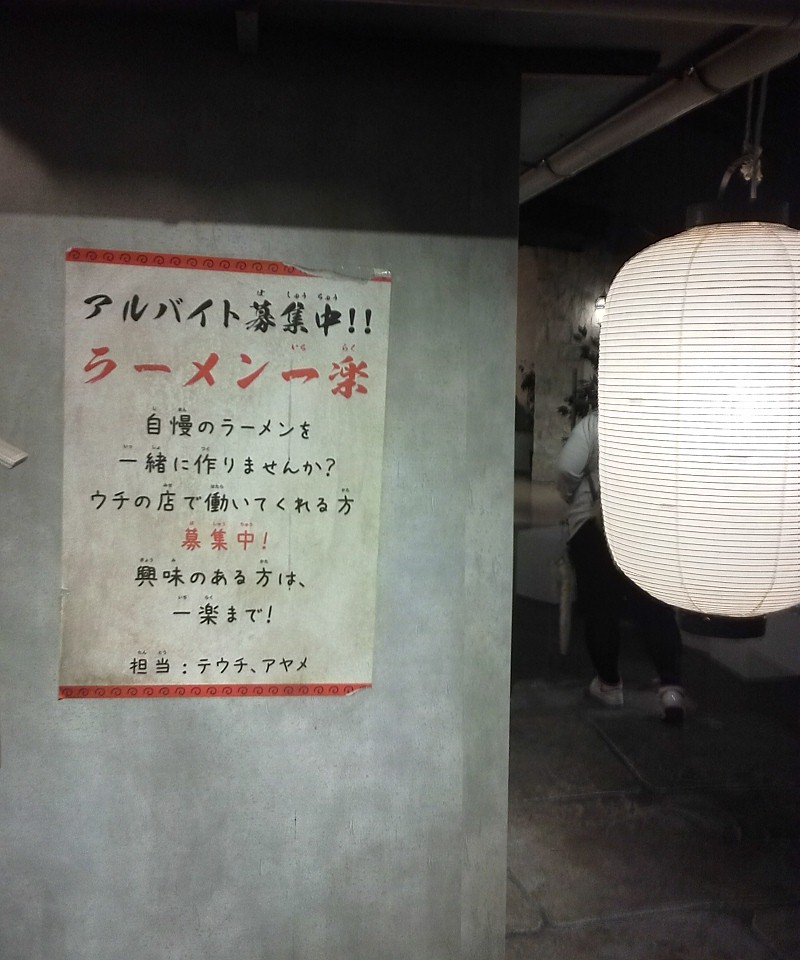 アルバイト募集中!!
ラーメン一楽
自慢のラーメンを
一緒に作りませんか?
ウチの店で働いてくれる方
募集中!
興味のある方は、
一楽まで!
担当:テウチ、アヤメ